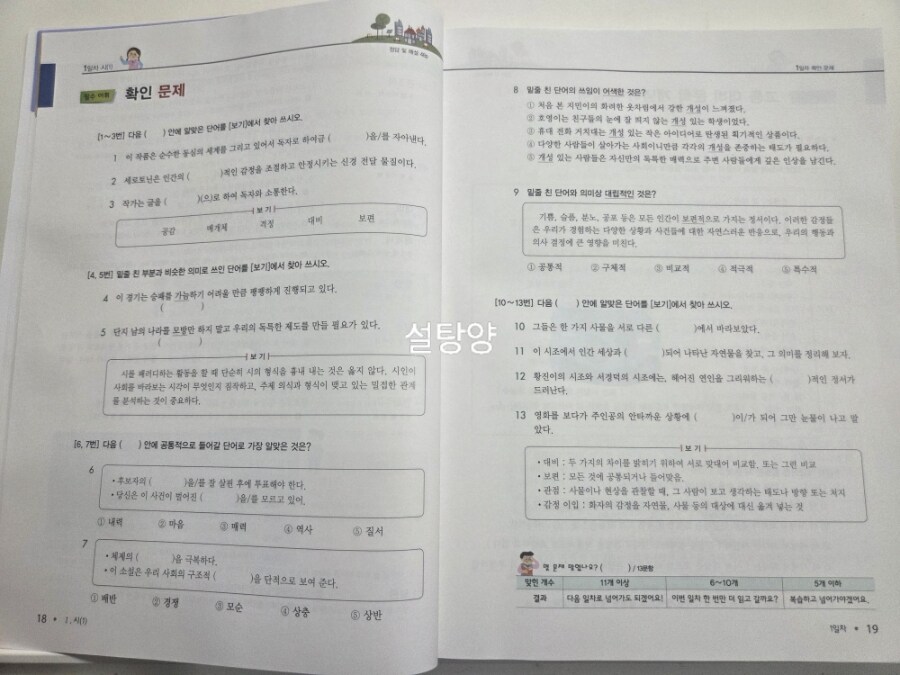 1일차 시(1)
정답 및 해설 4쪽
필수 어휘 확인 문제
[1~3번] 다음 (      ) 안에 알맞은 단어를 [보기]에서 찾아 쓰시오.
1 이 작품은 순수한 동심의 세계를 그리고 있어서 독자로 하여금 (      )을/를 자아낸다.
2 세로토닌은 인간의 (      )적인 감정을 조절하고 안정시키는 신경 전달 물질이다.
3 작가는 글을 (      )(으)로 하여 독자와 소통한다.
보기
공감 매개체 격정 대비 보편
[4, 5번] 밑줄 친 부분과 비슷한 의미로 쓰인 단어를 [보기]에서 찾아 쓰시오.
4 이 경기는 승패를 가늠하기 어려울 만큼 팽팽하게 진행되고 있다.
(      )
5 단지 남의 나라를 모방만 하지 말고 우리의 독특한 제도를 만들 필요가 있다.
(      )
보기
시를 패러디하는 활동을 할 때 단순히 시의 형식을 흉내 내는 것은 옳지 않다. 시인이
사회를 바라보는 시각이 무엇인지 짐작하고, 주제 의식과 형식이 맺고 있는 밀접한 관계
를 분석하는 것이 중요하다.
[6, 7번] 다음 (      ) 안에 공통적으로 들어갈 단어로 가장 알맞은 것은?
6
• 후보자의 (      )을/를 잘 살핀 후에 투표해야 한다.
• 당신은 이 사건이 벌어진 (      )을/를 모르고 있어.
① 내력 ② 마음 ③ 매력 ④ 역사 ⑤ 질서
7
• 체제의 (      )을 극복하다.
• 이 소설은 우리 사회의 구조적 (      )을 단적으로 보여 준다.
① 배반 ② 경쟁 ③ 모순 ④ 상충 ⑤ 상반
18 • Ⅰ. 시(1)
1일차 확인 문제
8 밑줄 친 단어의 쓰임이 어색한 것은?
① 처음 본 지민이의 화려한 옷차림에서 강한 개성이 느껴졌다.
② 호영이는 친구들의 눈에 잘 띄지 않는 개성 있는 학생이었다.
③ 휴대 전화 거치대는 개성 있는 작은 아이디어로 탄생된 획기적인 상품이다.
④ 다양한 사람들이 살아가는 사회이니만큼 각각의 개성을 존중하는 태도가 필요하다.
⑤ 개성 있는 사람들은 자신만의 독특한 매력으로 주변 사람들에게 깊은 인상을 남긴다.
9 밑줄 친 단어와 의미상 대립적인 것은?
기쁨, 슬픔, 분노, 공포 등은 모든 인간이 보편적으로 가지는 정서이다. 이러한 감정들
은 우리가 경험하는 다양한 상황과 사건들에 대한 자연스러운 반응으로, 우리의 행동과
의사 결정에 큰 영향을 미친다.
① 공통적 ② 구체적 ③ 비교적 ④ 적극적 ⑤ 특수적
[10~13번] 다음 (      ) 안에 알맞은 단어를 [보기]에서 찾아 쓰시오.
10 그들은 한 가지 사물을 서로 다른 (      )에서 바라보았다.
11 이 시조에서 인간 세상과 (      )되어 나타난 자연물을 찾고, 그 의미를 정리해 보자.
12 황진이의 시조와 서경덕의 시조에는, 헤어진 연인을 그리워하는 (      )적인 정서가
드러난다.
13 영화를 보다가 주인공의 안타까운 상황에 (      )이/가 되어 그만 눈물이 나고 말
았다.
보기
• 대비 : 두 가지의 차이를 밝히기 위하여 서로 맞대어 비교함. 또는 그런 비교
• 보편 : 모든 것에 공통되거나 들어맞음.
• 관점 : 사물이나 현상을 관찰할 때, 그 사람이 보고 생각하는 태도나 방향 또는 처지
• 감정 이입 : 화자의 감정을 자연물, 사물 등의 대상에 대신 옮겨 넣는 것
몇 문제 맞혔나요? (      ) / 13문항
맞힌 개수 11개 이상 6~10개 5개 이하
결과 다음 일차로 넘어가도 되겠어요! 이번 일차 한 번만 더 읽고 갈까요? 복습하고 넘어가야겠어요.
1일차 • 19
설탕양